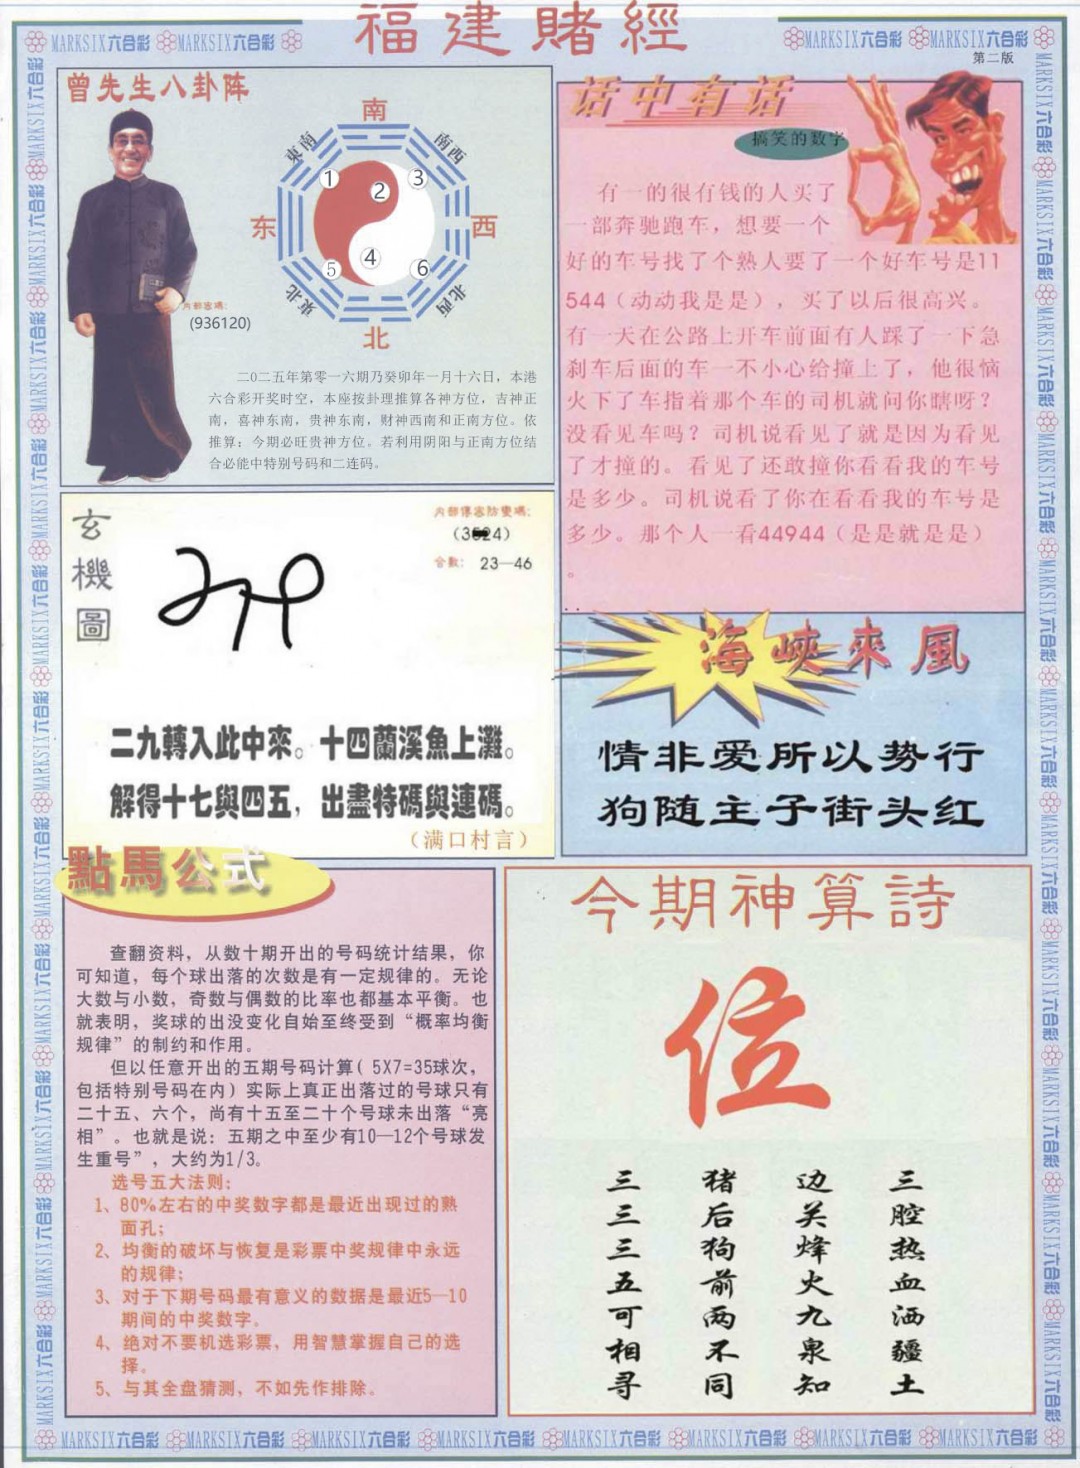 福建賭經
MARKSIX六合彩 MARKSIX六合彩
MARKSIX六合彩 MARKSIX六合彩
第二版
曾先生八卦阵
南
東南
南西
1
2
3
东
西
4
5
6
東北
北西
北
内部密碼:
(936120)
二〇二五年第零一六期乃癸卯年一月十六日，本港
六合彩开奖时空，本座按卦理推算各神方位，吉神正
南，喜神东南，贵神东南，财神西南和正南方位。依
推算：今期必旺贵神方位。若利用阴阳与正南方位结
合必能中特别号码和二连码。
话中有话
搞笑的数字
有一的很有钱的人买了
一部奔驰跑车，想要一个
好的车号找了个熟人要了一个好车号是11
544（动动我是是），买了以后很高兴。
有一天在公路上开车前面有人踩了一下急
刹车后面的车一不小心给撞上了，他很恼
火下了车指着那个车的司机就问你瞎呀？
没看见车吗？司机说看见了就是因为看见
了才撞的。看见了还敢撞你看看我的车号
是多少。司机说看了你在看看我的车号是
多少。那个人一看44944（是是就是是）
。
玄機圖
内部傳密防變碼:
合數: 23—46
二九轉入此中來。十四蘭溪魚上灘。
解得十七與四五，出盡特碼與連碼。
（满口村言）
海峽來風
情非爱所以势行
狗随主子街头红
點馬公式
查翻资料，从数十期开出的号码统计结果，你
可知道，每个球出落的次数是有一定规律的。无论
大数与小数，奇数与偶数的比率也都基本平衡。也
就表明，奖球的出没变化自始至终受到“概率均衡
规律”的制约和作用。
但以任意开出的五期号码计算( 5X7=35球次，
包括特别号码在内）实际上真正出落过的号球只有
二十五、六个，尚有十五至二十个号球未出落“亮
相”。也就是说：五期之中至少有10—12个号球发
生重号”，大约为1/3。
选号五大法则：
1、80%左右的中奖数字都是最近出现过的熟
面孔；
2、均衡的破坏与恢复是彩票中奖规律中永远
的规律；
3、对于下期号码最有意义的数据是最近5—10
期间的中奖数字。
4、绝对不要机选彩票，用智慧掌握自己的选
择。
5、与其全盘猜测，不如先作排除。
今期神算詩
位
三 猪 边 三
三 后 关 腔
三 狗 烽 热
五 前 火 血
可 两 九 洒
相 不 泉 疆
寻 同 知 土
MARKSIX六合彩 MARKSIX六合彩 MARKSIX六合彩 MARKSIX六合彩 MARKSIX六合彩 MARKSIX六合彩 MARKSIX六合彩 MARKSIX六合彩